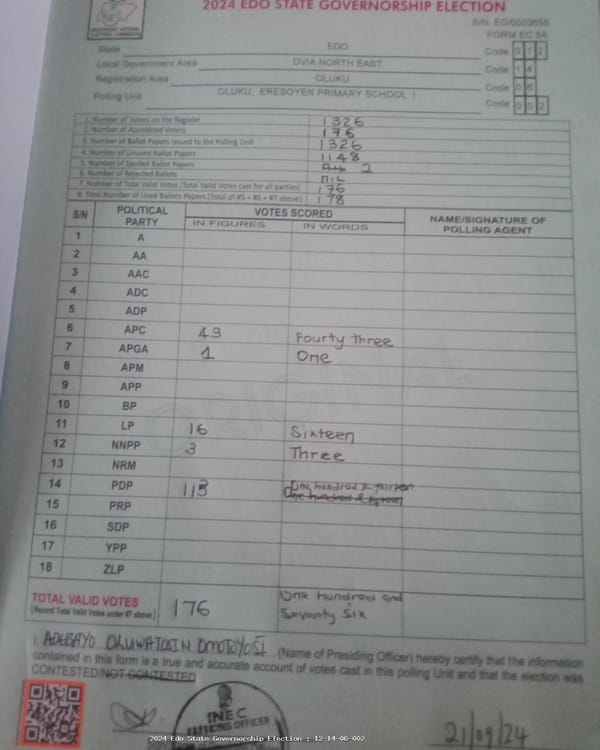 2024 EDO STATE GOVERNORSHIP ELECTION
INDEPENDENT NATIONAL ELECTORAL COMMISSION
FORM EC 8A
State EDO Code 0 1 2
Local Government Area OVIA NORTH EAST Code 1 4
Registration Area OLUKU Code 0 6
Polling Unit OLUKU, ERESOYEN PRIMARY SCHOOL I Code 0 0 2
1. Number of Voters on the Register 1326
2. Number of Accredited Voters 176
3. Number of Ballot Papers Issued to the Polling Unit 1326
4. Number of Unused Ballot Papers 1148
5. Number of Spoiled Ballot Papers 2
6. Number of Rejected Ballots NIL
7. Number of Total Valid Votes (Total Valid Votes cast for all parties) 176
8. Total Number of Used Ballots Papers (Total of #5 + #6 + #7 above) 178
S/N POLITICAL PARTY VOTES SCORED NAME/SIGNATURE OF POLLING AGENT
IN FIGURES IN WORDS
1 A
2 AA
3 AAC
4 ADC
5 ADP
6 APC 43 Fourty three
7 APGA 1 One
8 APM
9 APP
10 BP
11 LP 16 Sixteen
12 NNPP 3 Three
13 NRM
14 PDP 113 One hundred & thirteen
15 PRP
16 SDP
17 YPP
18 ZLP
ORIGINAL
TOTAL VALID VOTES 176 One hundred and
(Record Total Valid Votes under #7 above) Seventy Six
I, ADEBAYO OLUWATOSIN OMOTOYOSI (Name of Presiding Officer) hereby certify that the information
contained in this form is a true and accurate account of votes cast in this polling Unit and that the election was
CONTESTED/NOT CONTESTED
INEC
PRESIDING OFFICER
21/09/24
2024 Edo State Governorship Election : 12-14-06-002